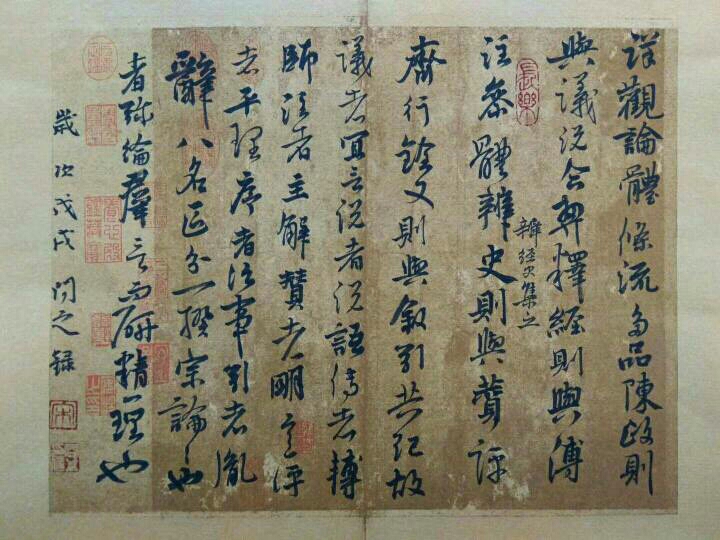 詳觀論體條流多品陳政則
與議說合契釋經則與傅
注叅體辨史則與贊評
長樂
辨經史集之
齊行銓文則與敘引共紀故
議者宜言說者說語傳者摶
師注者主解贊者明意評
者平理序者次事引者胤
辭八名區分一揆宗論論也
者弥綸羣言而研精一理也
歲次戊戌問之錄